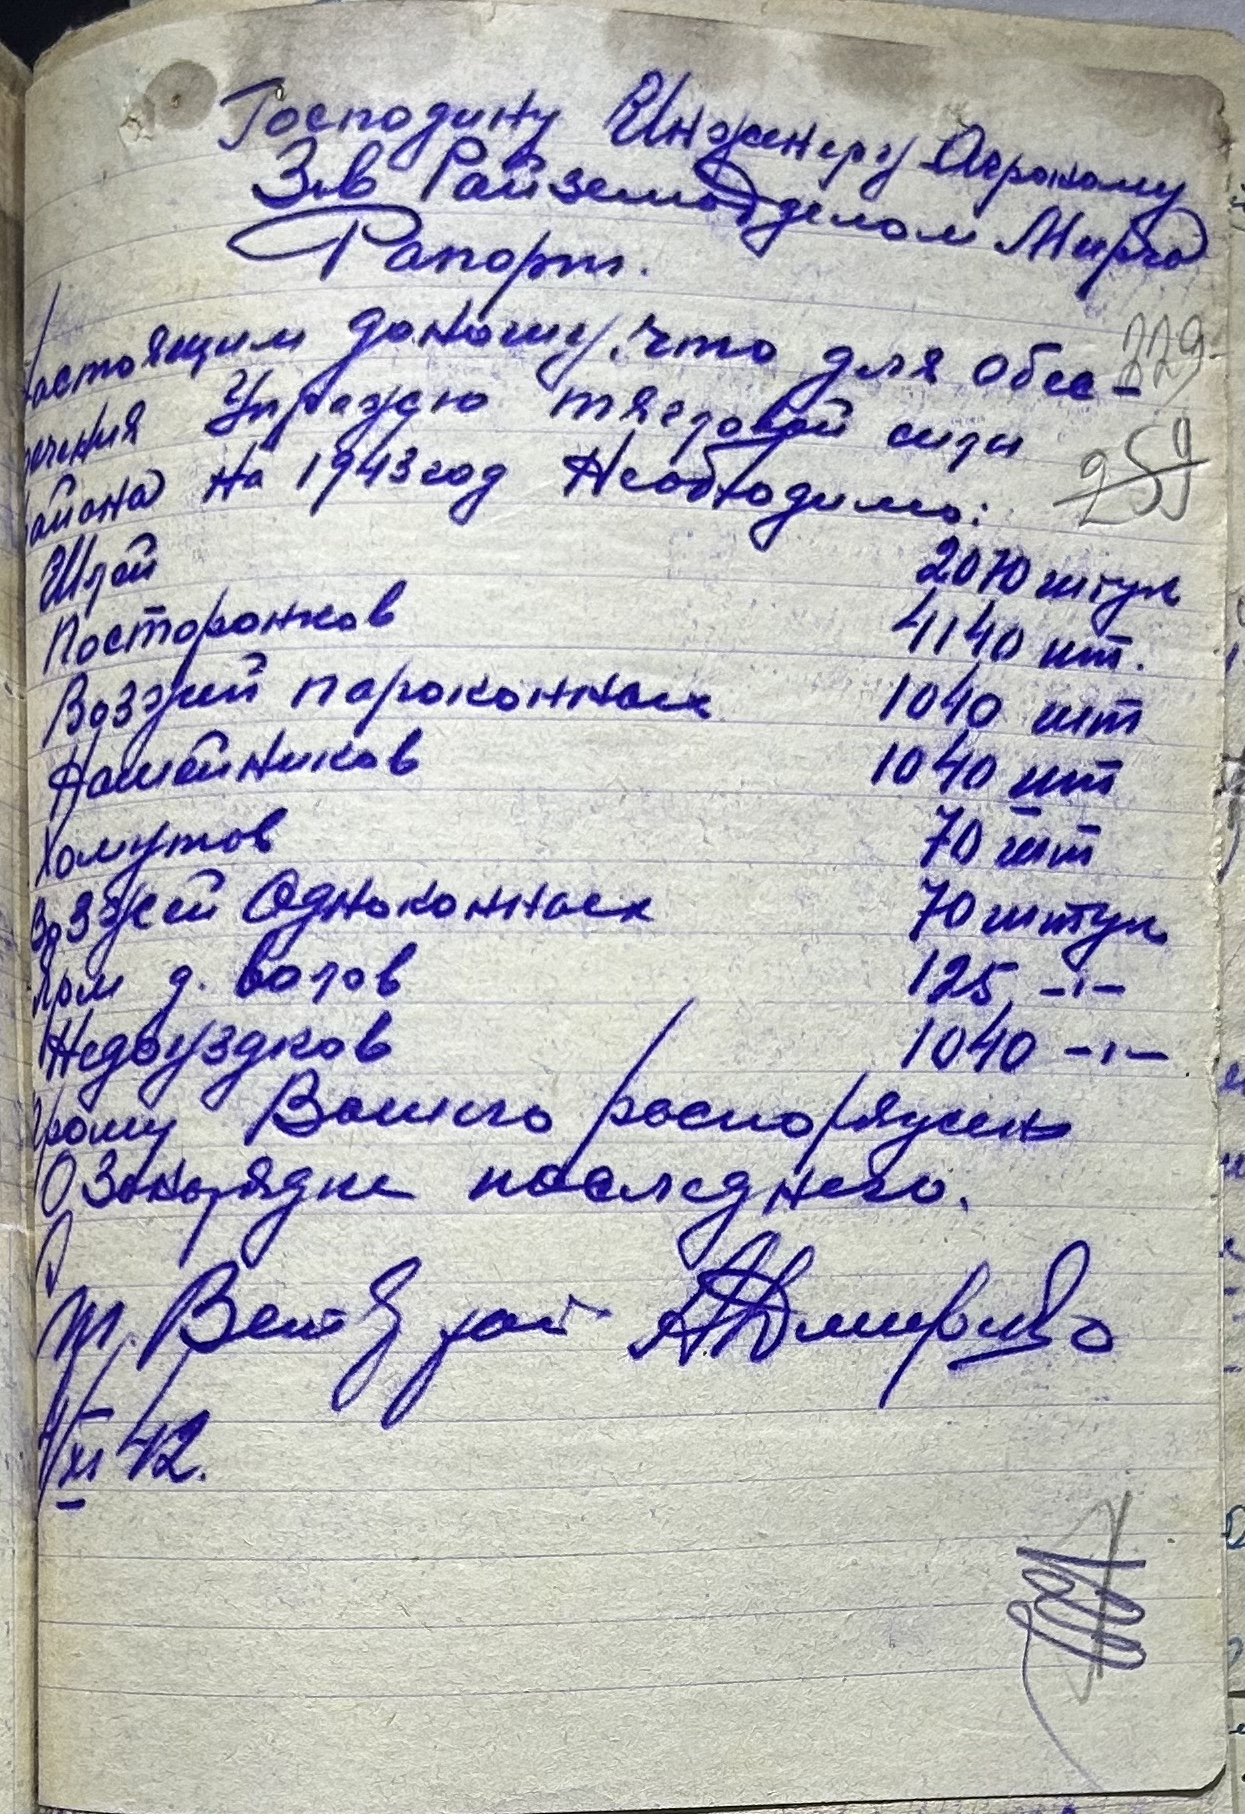 Господину Инженеру Агроному
Зав Райземотделом
Рапорт.
Настоящим доношу, что для обес-
229
печения Упряжью тягловой силы
района на 1943 год Необходимо:
259
Шлей 2070 штук
Посторонков 4140 шт.
Возжей пароконных 1040 шт
Нашейников 1040 шт
Хомутов 70 шт
Возжей Одноконных 70 штук
Ярм д. волов 125 -"-
Недоуздков 1040 -"-
Прошу Вашего распоряжен
О Занарядке последнего.
Ст. Вет
XI 42.